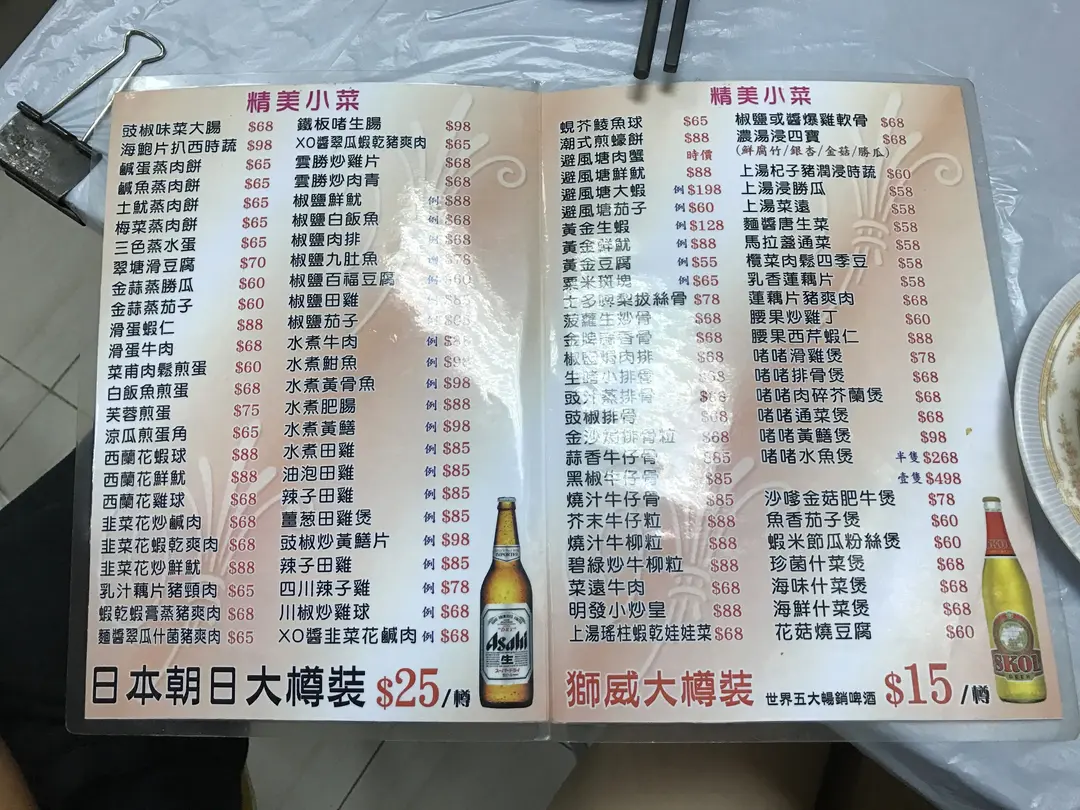 精美小菜
豉椒味菜大腸 $68
海鮑片扒西時蔬 $98
鹹蛋蒸肉餅 $65
鹹魚蒸肉餅 $65
土魷蒸肉餅 $65
梅菜蒸肉餅 $65
三色蒸水蛋 $65
翠塘滑豆腐 $70
金蒜蒸勝瓜 $60
金蒜蒸茄子 $60
滑蛋蝦仁 $88
滑蛋牛肉 $68
菜甫肉鬆煎蛋 $60
白飯魚煎蛋 $68
芙蓉煎蛋 $75
涼瓜煎蛋角 $65
西蘭花蝦球 $88
西蘭花鮮魷 $88
西蘭花雞球 $68
韭菜花炒鹹肉 $68
韭菜花蝦乾爽肉 $68
韭菜花炒鮮魷 $88
乳汁藕片豬頸肉 $65
蝦乾蝦膏蒸豬爽肉 $68
麵醬翠瓜什菌豬爽肉 $65
鐵板啫生腸 $98
XO醬翠瓜蝦乾豬爽肉 $65
雲勝炒雞片 $68
雲勝炒肉青 $68
椒鹽鮮魷 例 $88
椒鹽白飯魚 例 $68
椒鹽肉排 例 $68
椒鹽九肚魚 例 $78
椒鹽百福豆腐 例 $60
椒鹽田雞 例 $85
椒鹽茄子 例
水煮牛肉 例
水煮魽魚 例 $98
水煮黃骨魚 例 $98
水煮肥腸 例 $88
水煮黃鱔 例 $98
水煮田雞 例 $85
油泡田雞 例 $85
辣子田雞 例 $85
薑葱田雞煲 例 $85
豉椒炒黃鱔片 例 $98
辣子田雞 例 $85
四川辣子雞 例 $78
川椒炒雞球 例 $68
XO醬韭菜花鹹肉 例 $68
日本朝日大樽裝 $25/樽
Asahi
生
精美小菜
蜆芥鯪魚球 $65
潮式煎蠔餅 $88
避風塘肉蟹 時價
避風塘鮮魷 $88
避風塘大蝦 例 $198
避風塘茄子 例 $60
黃金生蝦 例 $128
黃金鮮魷 例 $88
黃金豆腐 例 $55
粟米斑塊 例 $65
士多啤梨拔絲骨 $78
菠蘿生炒骨 $68
金牌蒜香骨 $68
椒鹽焗肉排 $68
生嗜小排骨 $68
豉汁蒸排骨 $68
豉椒排骨 $68
金沙焗排骨粒 $68
蒜香牛仔骨 $85
黑椒牛仔骨 $85
燒汁牛仔骨 $85
芥末牛仔粒 $88
燒汁牛柳粒 $88
碧綠炒牛柳粒 $88
菜遠牛肉 $68
明發小炒皇 $88
上湯瑤柱蝦乾娃娃菜 $68
椒鹽或醬爆雞軟骨 $68
濃湯浸四寶 $68
(鮮腐竹/銀杏/金菇/勝瓜)
上湯杞子豬潤浸時蔬 $60
上湯浸勝瓜 $58
上湯菜遠 $58
麵醬唐生菜 $58
馬拉盞通菜 $58
欖菜肉鬆四季豆 $58
乳香蓮藕片 $58
蓮藕片豬爽肉 $68
腰果炒雞丁 $60
腰果西芹蝦仁 $88
啫啫滑雞煲 $78
啫啫排骨煲 $68
啫啫肉碎芥蘭煲 $68
啫啫通菜煲 $68
啫啫黃鱔煲 $98
啫啫水魚煲 半隻 $268
壹隻 $498
沙嗲金菇肥牛煲 $78
魚香茄子煲 $60
蝦米節瓜粉絲煲 $60
珍菌什菜煲 $68
海味什菜煲 $68
海鮮什菜煲 $68
花菇燒豆腐 $60
獅威大樽裝 世界五大暢銷啤酒 $15/樽
SKOL
BEER